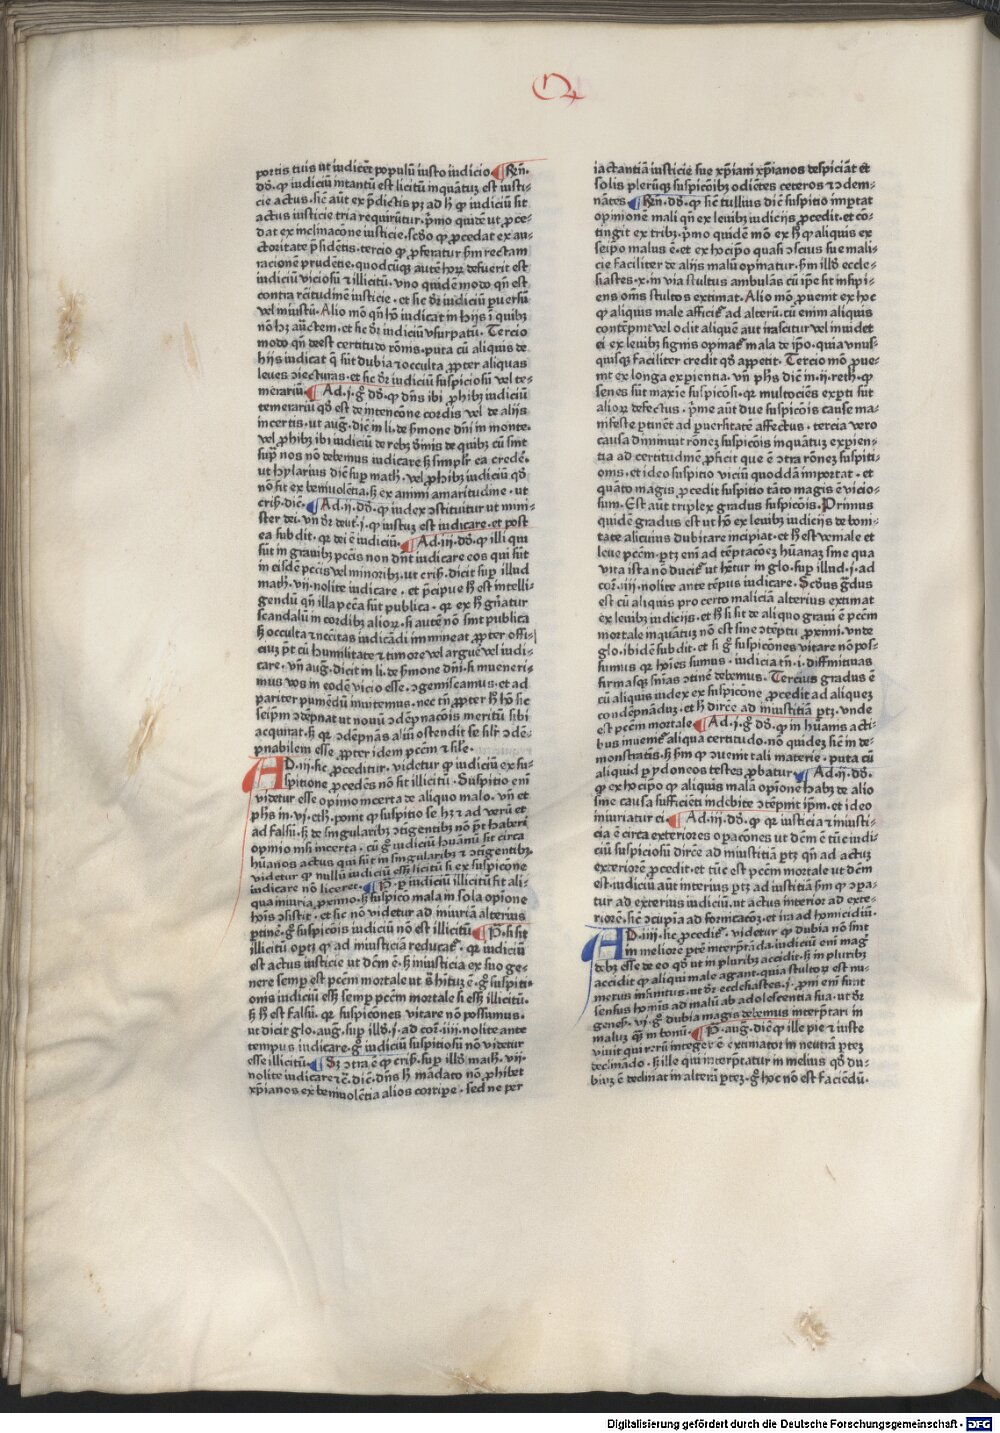 portis tuis ut iudicēt populū iusto iudicio ¶ Rñ.
dō. ꝙ iudiciū intantū est licitū inquātuȝ est iusti-
cie actus. sic̄ aūt ex p̄dictis pȝ ad ħ ꝙ iudiciū sit
actus iusticie tria requirūtur. p̄mo quidē ut ꝓce-
dat ex inclinacōne iusticie. scd̄o ꝙ ꝓcedat ex au-
ctoritate p̄sidētis. tercio ꝙ ꝓferatur s̄m rectam
racionē prudētie. quodcūqȝ autē hoꝝ defuerit est
iudiciū viciosū ⁊ illicitū. vno quidē modo qn̄ est
contra rc̄itudinē iusticie. et sic dr̄ iudiciū ꝑuersū
vel iniustū. Alio mō qn̄ hō iudicat in hijs ī quibȝ
nō hȝ auc̄tem. et sic dr̄ iudiciū vsurpatū. Tercio
modo qn̄ deest certitudo rōnis. puta cū aliquis de
hijs indicat q̄ sūt dubia ⁊ occulta ꝓpter aliquas
leues ↄiecturas. et sic dr̄ iudiciū suspiciosū vel te-
merariū. ¶ Ad .j. gͦ dō. ꝙ dn̄s ibi ꝓhibȝ iudiciū
temerariū qd̄ est de intencōne cordis vel de alijs
incertis. ut aug. dic̄ in li. de s̄mone dn̄i in monte.
vel ꝓhibȝ ibi iudiciū de rebȝ diīnis de quibȝ cū sint
suꝑ nos nō debemus iudicare sȝ simplr̄ ea credē.
ut hylarius dic̄ suꝑ math. vel ꝓhibȝ iudiciū qd̄
nō fit ex beniuolētia. sȝ ex animi amaritudine. ut
crīs. dic̄. ¶ Ad .ij. dō. ꝙ iudex ↄstituitur ut mini-
ster dei. vn̄ dr̄ deut̄. j. ꝙ iustuȝ est iudicare. et post
ea subdit. qꝛ dei ē iudiciū. ¶ Ad .iij. dō. ꝙ illi qui
sūt in grauibȝ pctīs non dn̄t iudicare eos qui sūt
in eisdē pctīs vel minoribȝ. ut crīs. dicit suꝑ illud
math. vij. nolite iudicare. et p̄cipue ħ est intelli-
gendū qn̄ illa pctā sūt publica. qꝛ ex ħ gn̄atur
scandalū in cordibȝ alioꝝ. si autē nō sint publica
sȝ occulta ⁊ necitas iudicādi immineat ꝓpter offi-
ciuȝ pt̄ cū humilitate ⁊ timore vel arguē vel iudi-
care. vn̄ aug. dicit in li. de s̄mone dn̄i. si inueneri-
mus nos in eodē vicio esse. ↄgemiscamus. et ad
pariter puniēdū inuitemus. nec tn̄ ꝓpter ħ hō sic
seip̄m ↄdēpnat ut nouū ↄdēpnacōis meritū sibi
acquirat. sȝ qꝛ ↄdēpnās aliū ostendit se silr̄ ↄdē-
pnabilem esse ꝓpter idem pctm̄ ⁊ sil̄e.
AD .iij. sic ꝓceditur. videtur ꝙ iudiciū ex su-
spitione ꝓcedēs nō sit illicitū. Suspitio enī
videtur esse opinio incerta de aliquo malo. vn̄ et
ph̄s in .vj. eth. ponit ꝙ suspitio se hȝ ⁊ ad verū et
ad falsū. sȝ de singularibȝ ↄtigentibȝ nō pt̄ haberi
opinio nisi incerta. cū gͦ iudiciū hūanū sit circa
hūanos actus qui sūt in singularibȝ ⁊ ↄtigentibȝ.
videtur ꝙ nullū iudiciū ess̄ licitū si ex suspicōne
iudicare nō liceret. ¶ P̄. ꝑ iudiciū illicitū fit ali-
qua iniuria ꝓximo. sȝ suspicō mala in sola opiōne
hoīs ↄsistit. et sic nō videtur ad iniuriā alterius
ꝑtinē. gͦ suspicōis iudiciū nō est illicitū. ¶ P̄. si sit
illicitū optȝ ꝙ ad iniusticiā reducat᷑. qꝛ iudiciū
est actus iusticie ut dcm̄ ē. sȝ iniusticia ex suo ge-
nere semꝑ est pctm̄ mortale ut s̄ hituȝ ē. gͦ suspiti-
onis iudiciū ess̄ semꝑ pctm̄ mortale si ess̄ illicitū.
sȝ ħ est falsū. qꝛ suspicones vitare nō possumus.
ut dicit glo. aug. suꝑ illd̄ .j. ad coꝝ. iiij. nolite ante
tempus iudicare. gͦ iudiciū suspitiosū nō videtur
esse illicitū. ¶ Sȝ ↄtra ē ꝙ crīs. suꝑ illd̄ math. vij.
nolite iudicare ⁊c̄. dic̄. dn̄s ħ mādato nō ꝓhibet
xp̄ianos ex beniuolētia alios corripe. sed ne per
iactantiā iusticie sue xp̄iani xp̄ianos despiciāt et
solis plerūqȝ suspicōibȝ odiētes ceteros ⁊ ↄdem-
nātes. ¶ Rñ. dō. ꝙ sic̄ tullius dic̄ suspitio importat
opinionē mali qn̄ ex leuibȝ iudicijs ꝓcedit. et cō-
tingit ex tribȝ. p̄mo quidē mō ex ħ ꝙ aliquis ex
seip̄o malus ē. et ex hoc ip̄o quasi ↄscius sue mali-
cie faciliter de alijs malū opinatur. s̄m illd̄ eccle-
siastes. x. in via stultus ambulās cū ip̄e sit insipi-
ens om̄s stultos extimat. Alio mō ꝓuenit ex hoc
ꝙ aliquis male afficit᷑ ad alterū. cū enim aliquis
contēpnit vel odit aliquē aut irascitur vel inuidet
ei ex leuibȝ signis opinat᷑ mala de ip̄o. quia vnus-
quisqȝ faciliter credit qd̄ appetit. Tercio mō ꝓue-
nit ex longa exꝑientia. vn̄ ph̄s dic̄ in .ij. reth. ꝙ
senes sūt maxie suspicōsi. qꝛ multociēs exꝑti sūt
alioꝝ defectus. prime aūt due suspicōis cause ma-
nifeste ꝑtinēt ad ꝑuersitatē affectus. tercia vero
causa diminuit rōneȝ suspicōis inquātuȝ exꝑien-
tia ad certitudinē ꝓficit que ē ↄtra rōneȝ suspiti-
onis. et ideo suspitio viciū quoddā importat. et
quāto magis ꝓcedit suspitio tāto magis ē vicio-
sum. Est aūt triplex gradus suspicōis. Primus
quidē gradus est ut hō ex leuibȝ iudicijs de boni-
tate alicuius dubitare incipiat. et ħ est veniale et
leue pctm̄. ꝑtȝ enī ad tēptacōeȝ hūanaȝ sine qua
vita ista nō ducit᷑ ut hētur in glo. suꝑ illud .j. ad
coꝝ. iiij. nolite ante tēpus iudicare. Scd̄us gͣdus
est cū aliquis pro certo maliciā alterius extimat
ex leuibȝ iudicijs. et ħ si sit de aliquo graui ē pctm̄
mortale inquātuȝ nō est sine ↄtēptu ꝓximi. vnde
glo. ibidē subdit. et si gͦ suspicōnes vitare nō pos-
sumus qꝛ hoīes sumus. iudicia tn̄. i. diffinitiuas
firmasqȝ sn̄ias ↄtinē debemus. Tercius gradus ē
cū aliquis iudex ex suspicōne ꝓcedit ad aliqueȝ
condēpnāduȝ. et ħ dirc̄e ad iniustitiā ptȝ. vnde
est pctm̄ mortale. ¶ Ad .j. gͦ dō. ꝙ in hūanis acti-
bus inuenit᷑ aliqua certitudo. nō quideȝ sic̄ in de-
monstratīs. sȝ s̄m ꝙ ↄuenit tali materie. puta cū
aliquid ꝑ ydoneos testes ꝓbatur. ¶ Ad .ij. dō.
ꝙ ex hoc ip̄o ꝙ aliquis malā opiōne habȝ de alio
sine causa sufficiēti indebite ↄtēpnit ip̄m. et ideo
iniuriatur ei. ¶ Ad .iij. dō. ꝙ qꝛ iusticia ⁊ iniusti-
cia ē circa exteriores oꝑacōnes ut dcm̄ ē tūc iudi-
ciū suspiciosū dirc̄e ad iniustitiā ptȝ qn̄ ad actuȝ
exteriorē ꝓcedit. et tūc est pctm̄ mortale ut dcm̄
est. iudiciū aūt interius ptȝ ad iustitiā s̄m ꝙ ↄꝑa-
tur ad exterius iudiciū. ut actus interior ad exte-
riorē. sic̄ ↄcupīa ad fornicacōȝ. et ira ad homicidiū.
AD .iiij. sic ꝓcedit᷑. videtur ꝙ dubia nō sint
in meliorē ꝑtē interp̄tāda. iudiciū enī mag̓
debȝ esse de eo qd̄ ut in pluribȝ accidit. sȝ in pluribȝ
accidit ꝙ aliqui male agant. quia stultoꝝ est nu-
merus infinitus. ut dr̄ ecclesiastes. j. ꝓni enī sunt
sensus hominis ad malū ab adolescentia sua. ut dr̄
genes̄. vj. gͦ dubia magis debemus interp̄tari in
maluȝ qͣȝ in bonū. ¶ P̄. aug. dic̄ ꝙ ille pie ⁊ iuste
viuit qui rerū integer ē extimator in neutrā ꝑteȝ
declinādo. sȝ ille qui interp̄tatur in melius qd̄ du-
biuȝ ē declinat in alterā ꝑteȝ. gͦ hoc nō est faciēdū.
Digitalisierung gefördert durch die Deutsche Forschungsgemeinschaft - DFG